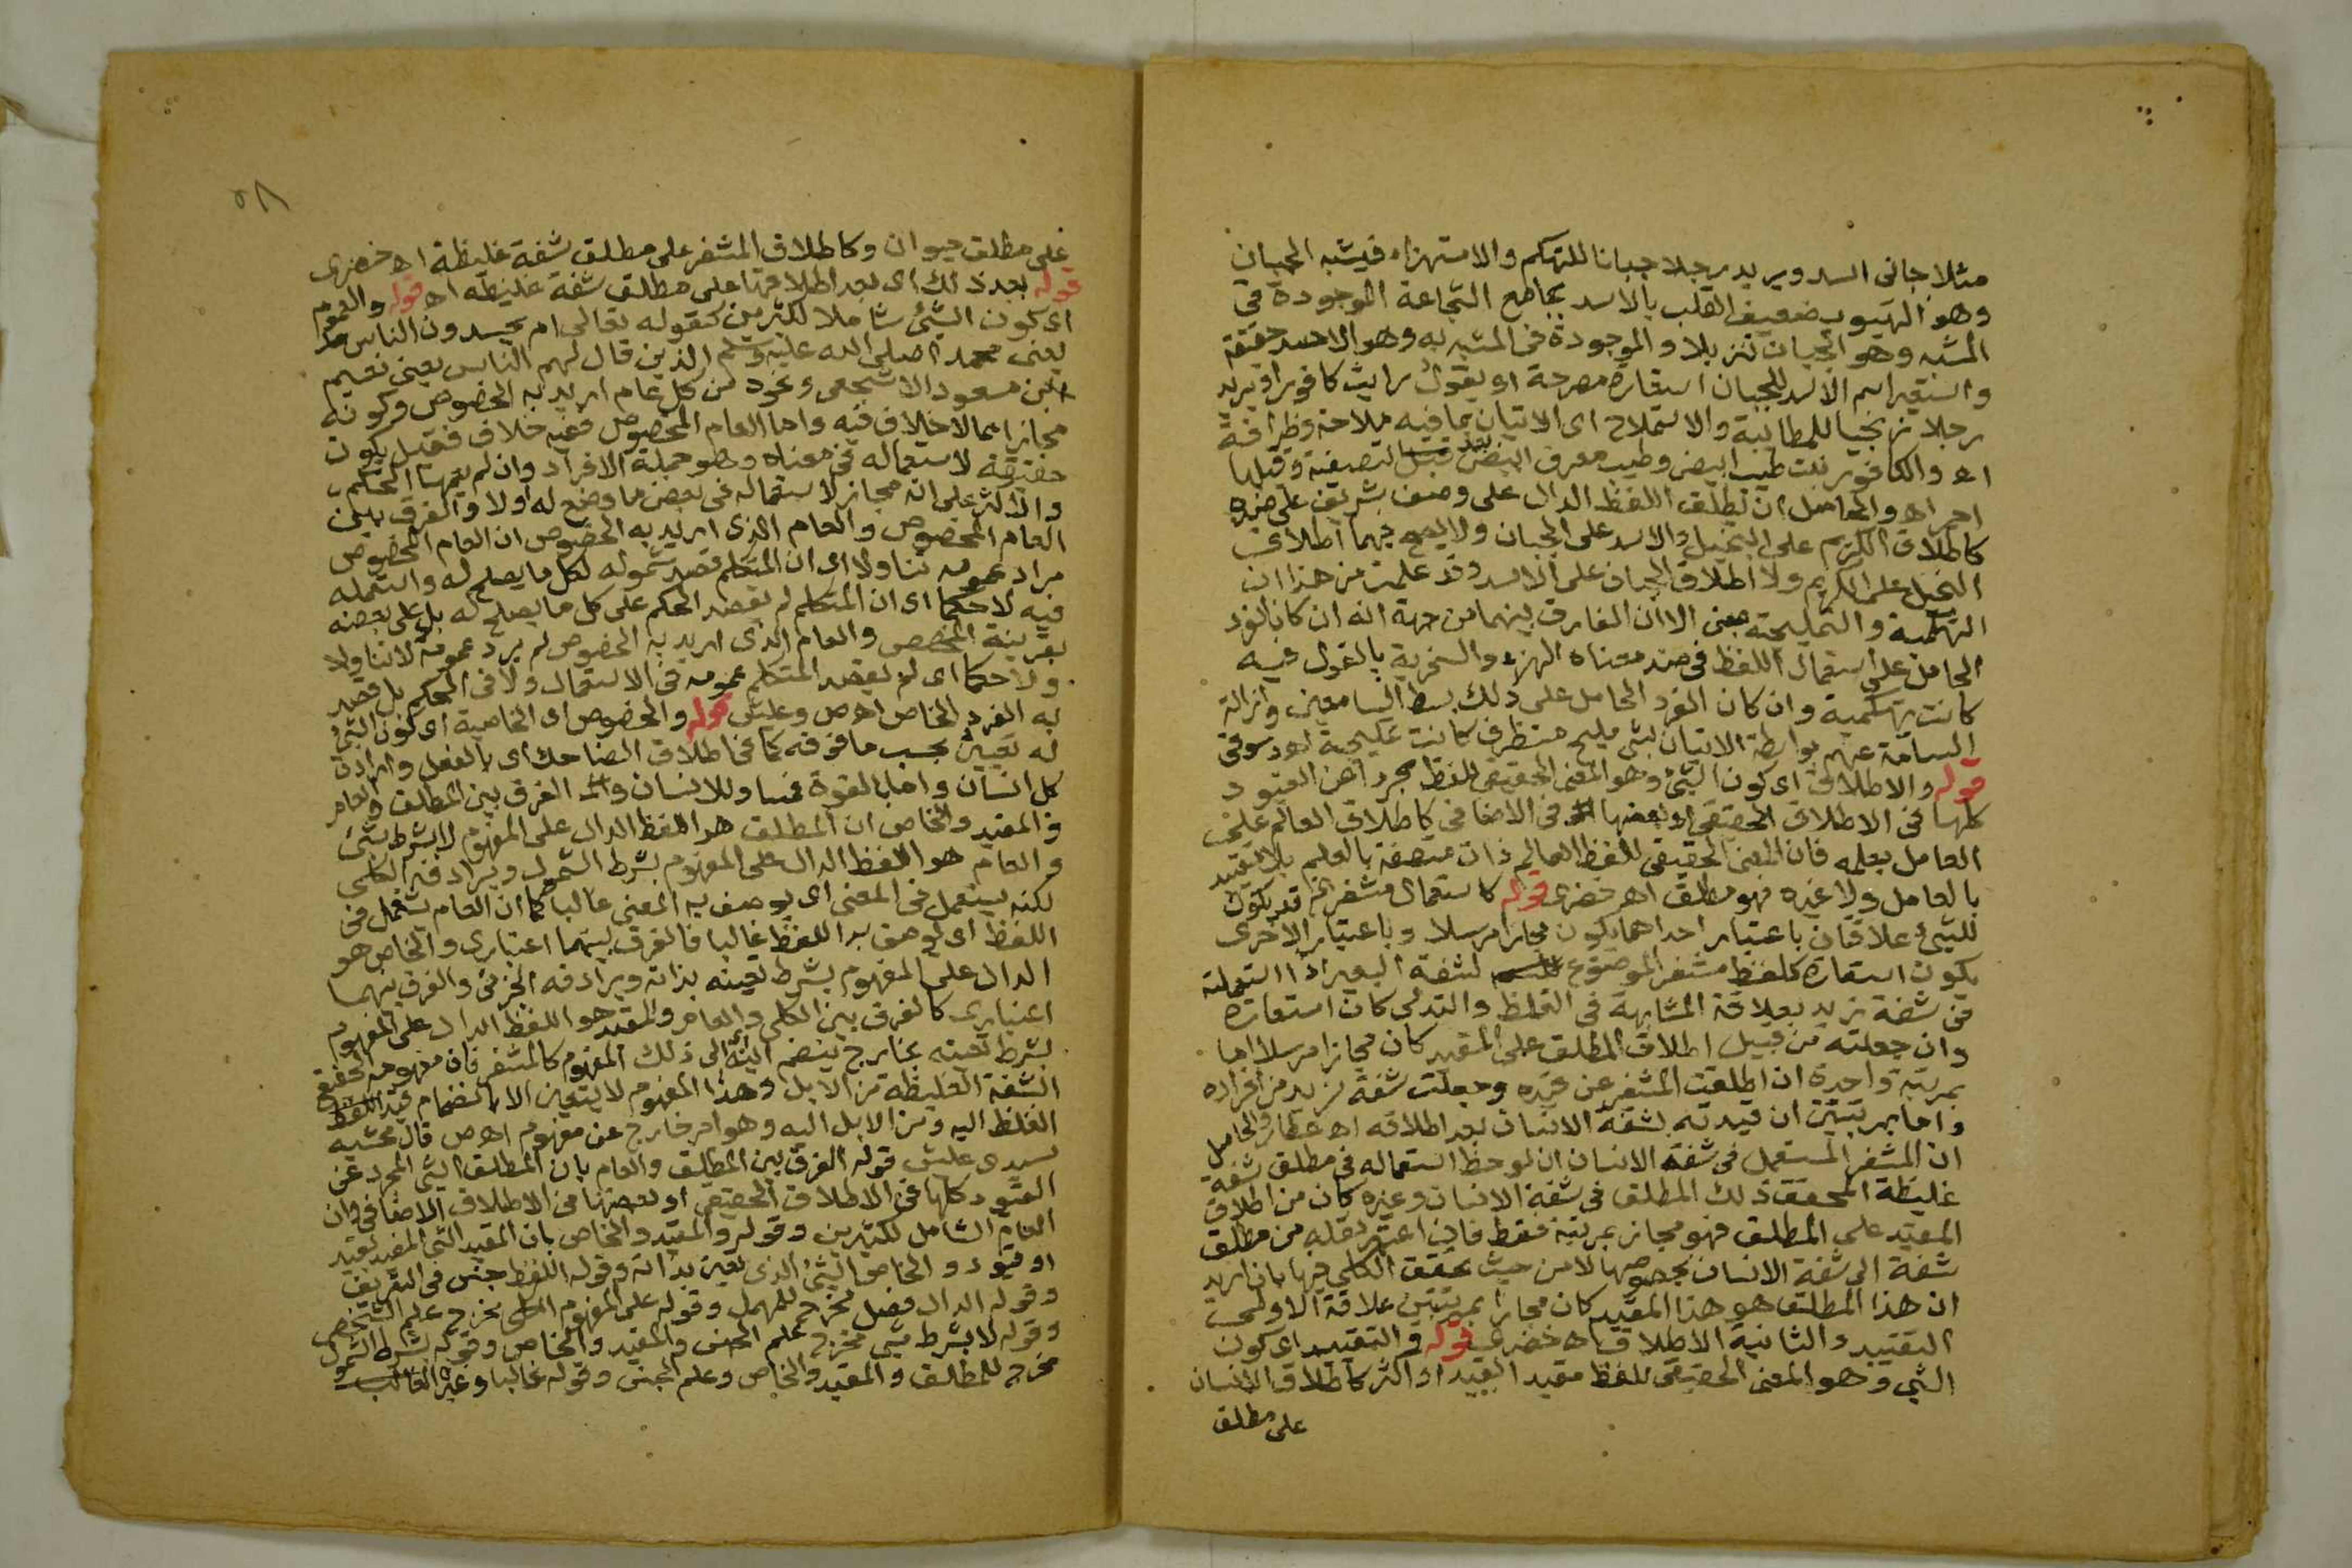 مثلا جانى اسد ويريد رجلا جبانا للتهكم والاستهزاء فيشبه الجبان
وهو الهيوب ضعيف القلب بالاسد بجامع الشجاعة الموجودة فى
المشبه وهو الجبان تنزيلا والموجودة فى المشبه به وهو الاسد حقيقة
واستعير اسم الاسد للجبان استعارة مصرحة او يقول رايت كافورا ويريد
رجلا زنجيا للمطايبة والاستملاح اى الاتيان بما فيه ملاحة وظرافة
اه والكافور نبت طيب ابيض وطيب معرق ابيض قبل تصفيته وقبلها
احمر اه والحاصل ان تطلق اللفظ الدال على وصف شريف على ضده
كاطلاق الكريم على البخيل والاسد على الجبان ولا يصح فيهما اطلاق
البخيل على الكريم ولا اطلاق الجبان على الاسد وقد علمت من هذا ان
التهكمية والتمليحية بمعنى الا ان الفارق بينهما من جهة انه ان كان الغرض
الحامل على استعمال اللفظ فى ضد معناه الهزء والسخرية بالمقول فيه
كانت تهكمية وان كان الغرض الحامل على ذلك بسط السامعين وازالة
السآمة عنهم بواسطة الاتيان بشئ مليح مستظرف كانت تمليحية اه دسوقى
قوله والاطلاق اى كون الشئ وهو المعنى الحقيقى للفظ مجردا عن القيود
كلها فى الاطلاق الحقيقى او بعضها فى الاضافى كاطلاق العالم على
العامل بعلمه فان المعنى الحقيقى للفظ العالم ذات متصفة بالعلم بلا تقييد
بالعامل ولا غيره فهو مطلق اه خضرى قوله كاستعمال مشفر الخ قد يكون
للشئ علاقتان باعتبار احداهما يكون مجازا مرسلا وباعتبار الاخرى
يكون استعارة كلفظ مشفر الموضوع لشفة البعير اذا استعملته
فى شفة زيد بعلاقة المشابهة فى الغلظ والتدلى كان استعارة
وان جعلته من قبيل اطلاق المطلق على المقيد كان مجازا مرسلا اما
بمرتبة واحدة ان اطلقت المشفر عن قيده وجعلت شفة زيد من افراده
واما بمرتبتين ان قيدته بشفة الانسان بعد اطلاقه اه عطار والحاصل
ان المشفر المستعمل فى شفة الانسان ان لوحظ استعماله فى مطلق شفة
غليظة المحقق ذلك المطلق فى شفة الانسان وغيره كان من اطلاق
المقيد على المطلق فهو مجاز بمرتبة فقط فان اعتبر نقله من مطلق
شفة الى شفة الانسان بخصوصها لا من حيث تحقق الكلى فيها بان اريد
ان هذا المطلق هو هذا المقيد كان مجازا بمرتبتين علاقة الاولى
التقييد والثانية الاطلاق اه خضرى قوله والتقييد اى كون
الشئ وهو المعنى الحقيقى للفظ مقيد القيد او اكثر كاطلاق الانسان
على مطلق
٥٨
على مطلق حيوان وكاطلاق المشفر على مطلق شفة غليظة اه خضرى
قوله بعد ذلك اى بعد اطلاقها على مطلق شفة غليظة اه قوله والعموم
اى كون الشئ شاملا لكثيرين كقوله تعالى ام يحسدون الناس
يعنى محمدا صلى الله عليه وسلم الذين قال لهم الناس يعنى نعيم
بن مسعود الاشجعى ونحوه من كل عام اريد به الخصوص وكونه
مجازا مما لا خلاف فيه واما العام المخصوص ففيه خلاف فقيل يكون
حقيقة لاستعماله فى معناه وهو جملة الافراد وان لم يعمها الحكم
والاكثر على انه مجاز لاستعماله فى بعض ما وضع له اولا والفرق بين
العام المخصوص والعام الذى اريد به الخصوص ان العام المخصوص
مراد عمومه تناولا اى ان المتكلم قصد شموله لكل ما يصلح له واستعمله
فيه لا حكما اى ان المتكلم لم يقصد الحكم على كل ما يصلح له بل على بعضه
بقرينة المخصص والعام الذى اريد به الخصوص لم يرد عمومه لا تناولا
ولا حكما اى لم يقصد المتكلم عمومه فى الاستعمال ولا فى الحكم بل قصد
به الفرد الخاص اه ص وعليش قوله والخصوص اى الخاصية اى كون الشئ
له تعين بحسب ما فوقه كما فى اطلاق الضاحك اى بالفعل وارادة
كل انسان واما بالقوة فمساو للانسان والفرق بين المطلق والعام
والمقيد والخاص ان المطلق هو اللفظ الدال على المفهوم لا بشرط شئ
والعام هو اللفظ الدال على المفهوم بشرط الشمول ويرادفه الكلى
لكنه يستعمل فى المعنى اى يوصف به المعنى غالبا كما ان العام يستعمل فى
اللفظ اى يوصف به اللفظ غالبا فالفرق بينهما اعتبارى والخاص هو
الدال على المفهوم بشرط تعينه بذاته ويرادفه الجزئى والفرق بينهما
اعتبارى كالفرق بين الكلى والعام والمقيد هو اللفظ الدال على المفهوم
بشرط تعينه بخارج ينضم الى ذلك المفهوم كالمشفر فان مفهومه الحقيقى
الشفة الغليظة من الابل وهذا المفهوم لا يتعين الا بانضمام قيد
الغلظ اليه ومن الابل اليه وهو امر خارج عن مفهوم اه ص قال محشيه
سيدى عليش قوله الفرق بين المطلق والعام بان المطلق الشئ المجرد عن
القيود كلها فى الاطلاق الحقيقى او بعضها فى الاطلاق الاضافى وان
العام الشامل لكثيرين وقوله والمقيد والخاص بان المقيد الشئ المقيد بقيد
او قيود والخاص الشئ الذى تعين بذاته وقوله اللفظ جنس فى التعريف
وقوله الدال فصل مخرج للمهمل وقوله على المفهوم الكلى مخرج علم الشخص
وقوله لا بشرط شئ مخرج علم الجنس والمقيد والخاص وقوله بشرط الشمول
مخرج للمطلق والمقيد والخاص وعلم الجنس وقوله غالبا وغير الغالب